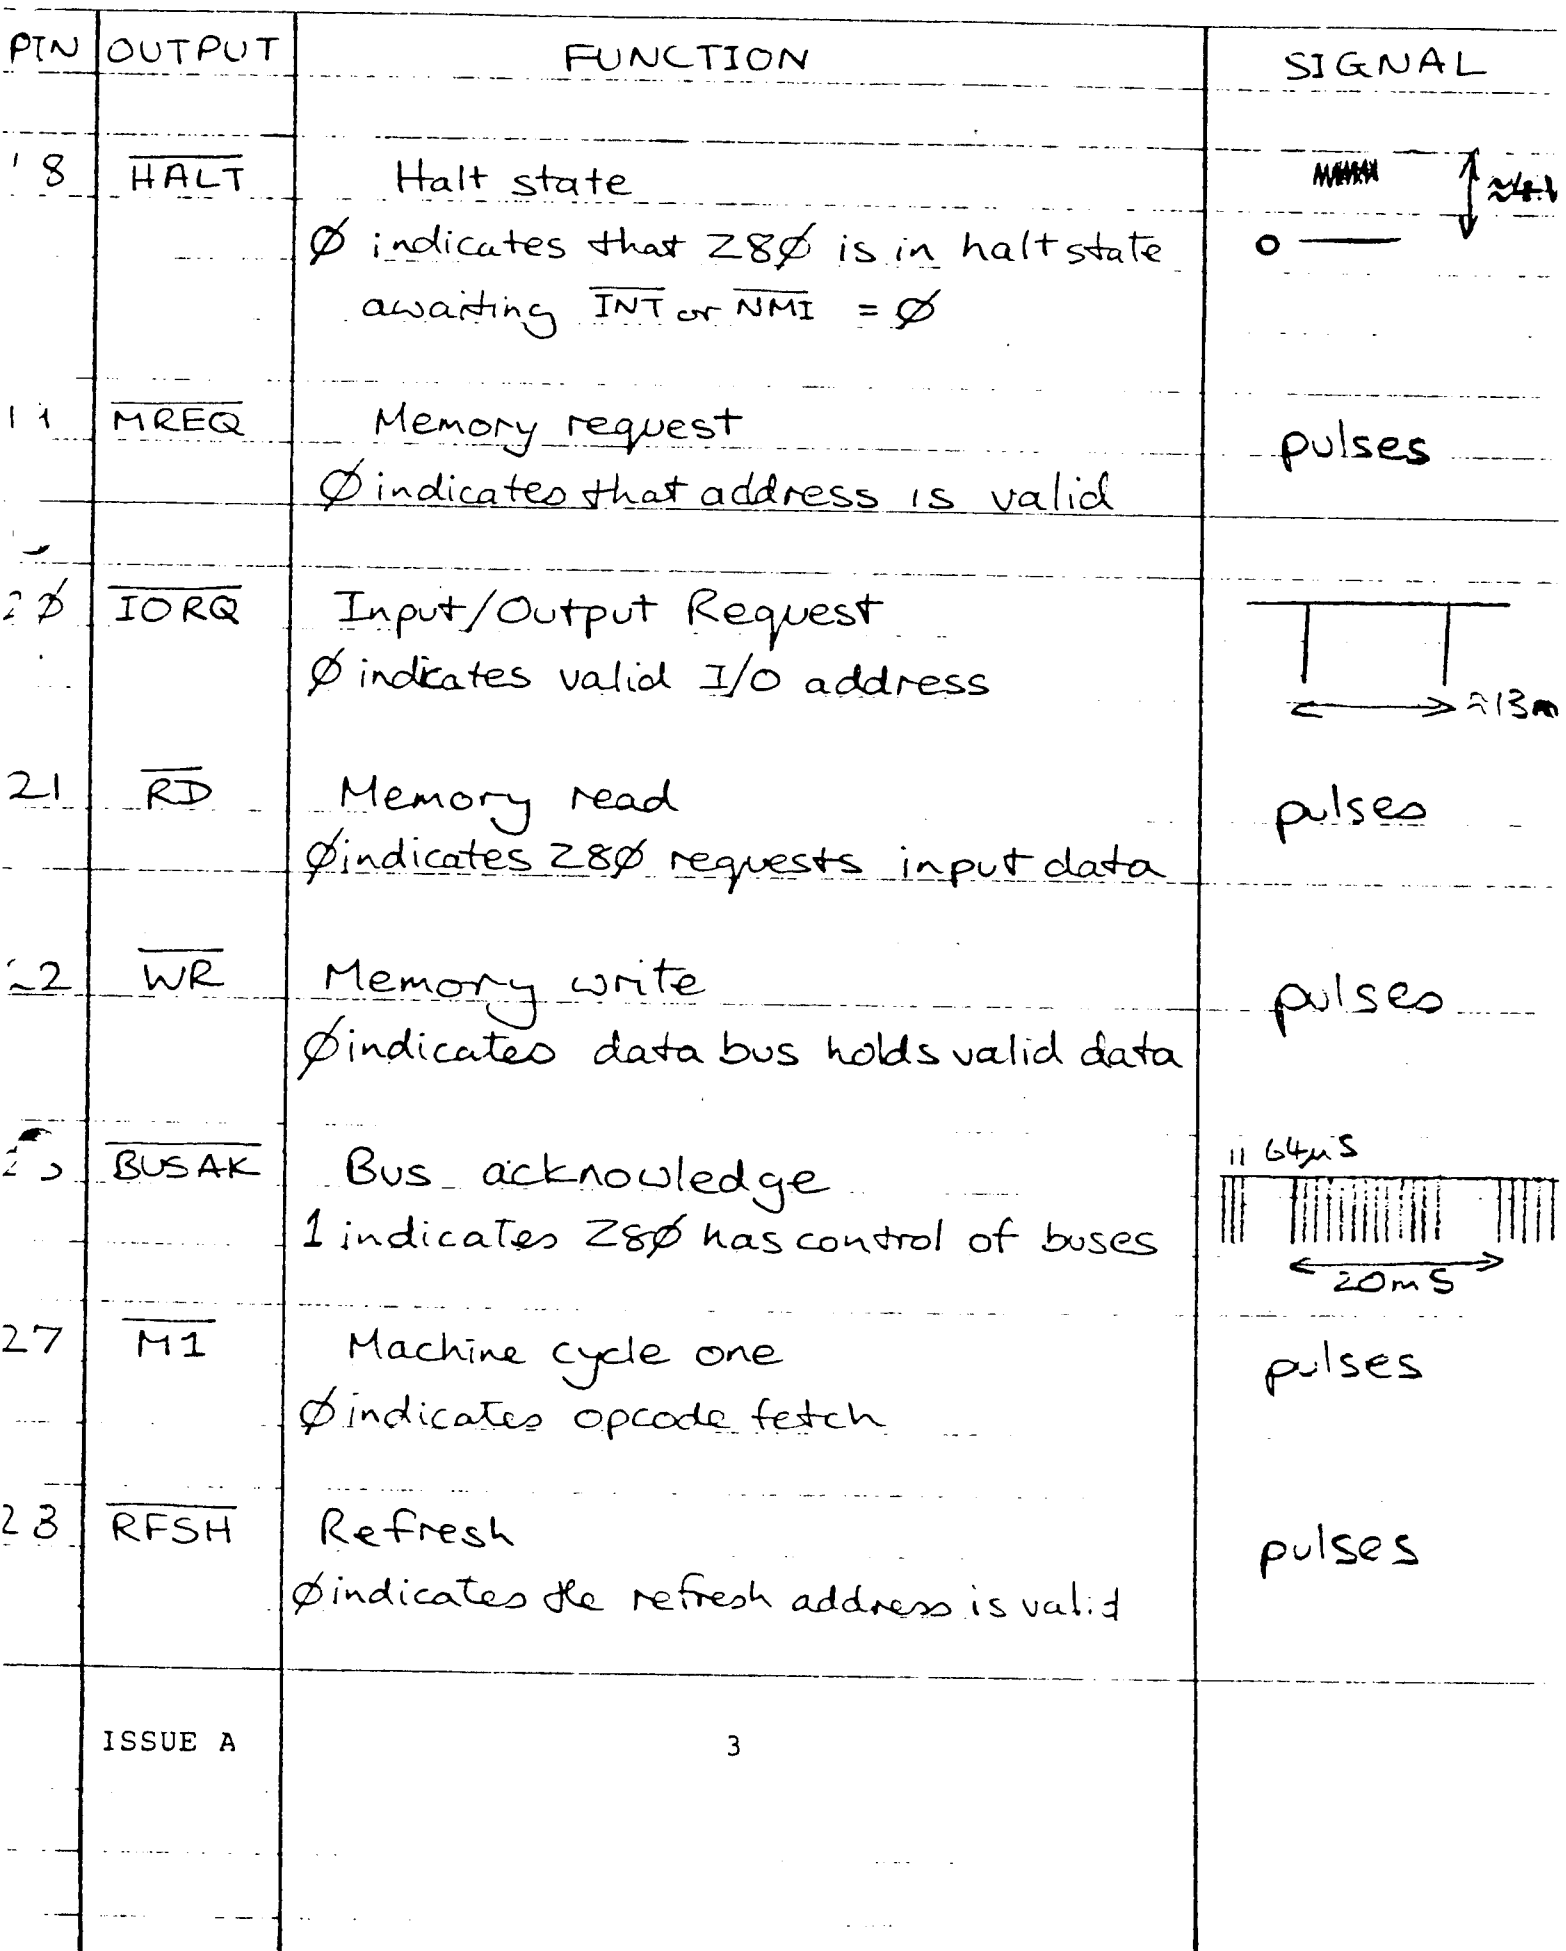 PIN OUTPUT FUNCTION SIGNAL
18 H̅A̅L̅T̅ Halt state
Ø indicates that Z8Ø is in halt state O
awaiting I̅N̅T̅ or N̅M̅I̅ = Ø
M̅R̅E̅Q̅ Memory request pulses
Ø indicates that address is valid
2Ø I̅O̅R̅Q̅ Input/Output Request
Ø indicates valid I/O address
≈13m
21 R̅D̅ Memory read pulses
Ø indicates Z8Ø requests input data
22 W̅R̅ Memory write pulses
Ø indicates data bus holds valid data
B̅U̅S̅A̅K̅ Bus acknowledge 64µS
1 indicates Z8Ø has control of buses
20mS
27 M̅1̅ Machine cycle one pulses
Ø indicates opcode fetch
28 R̅F̅S̅H̅ Refresh pulses
Ø indicates the refresh address is valid
ISSUE A 3